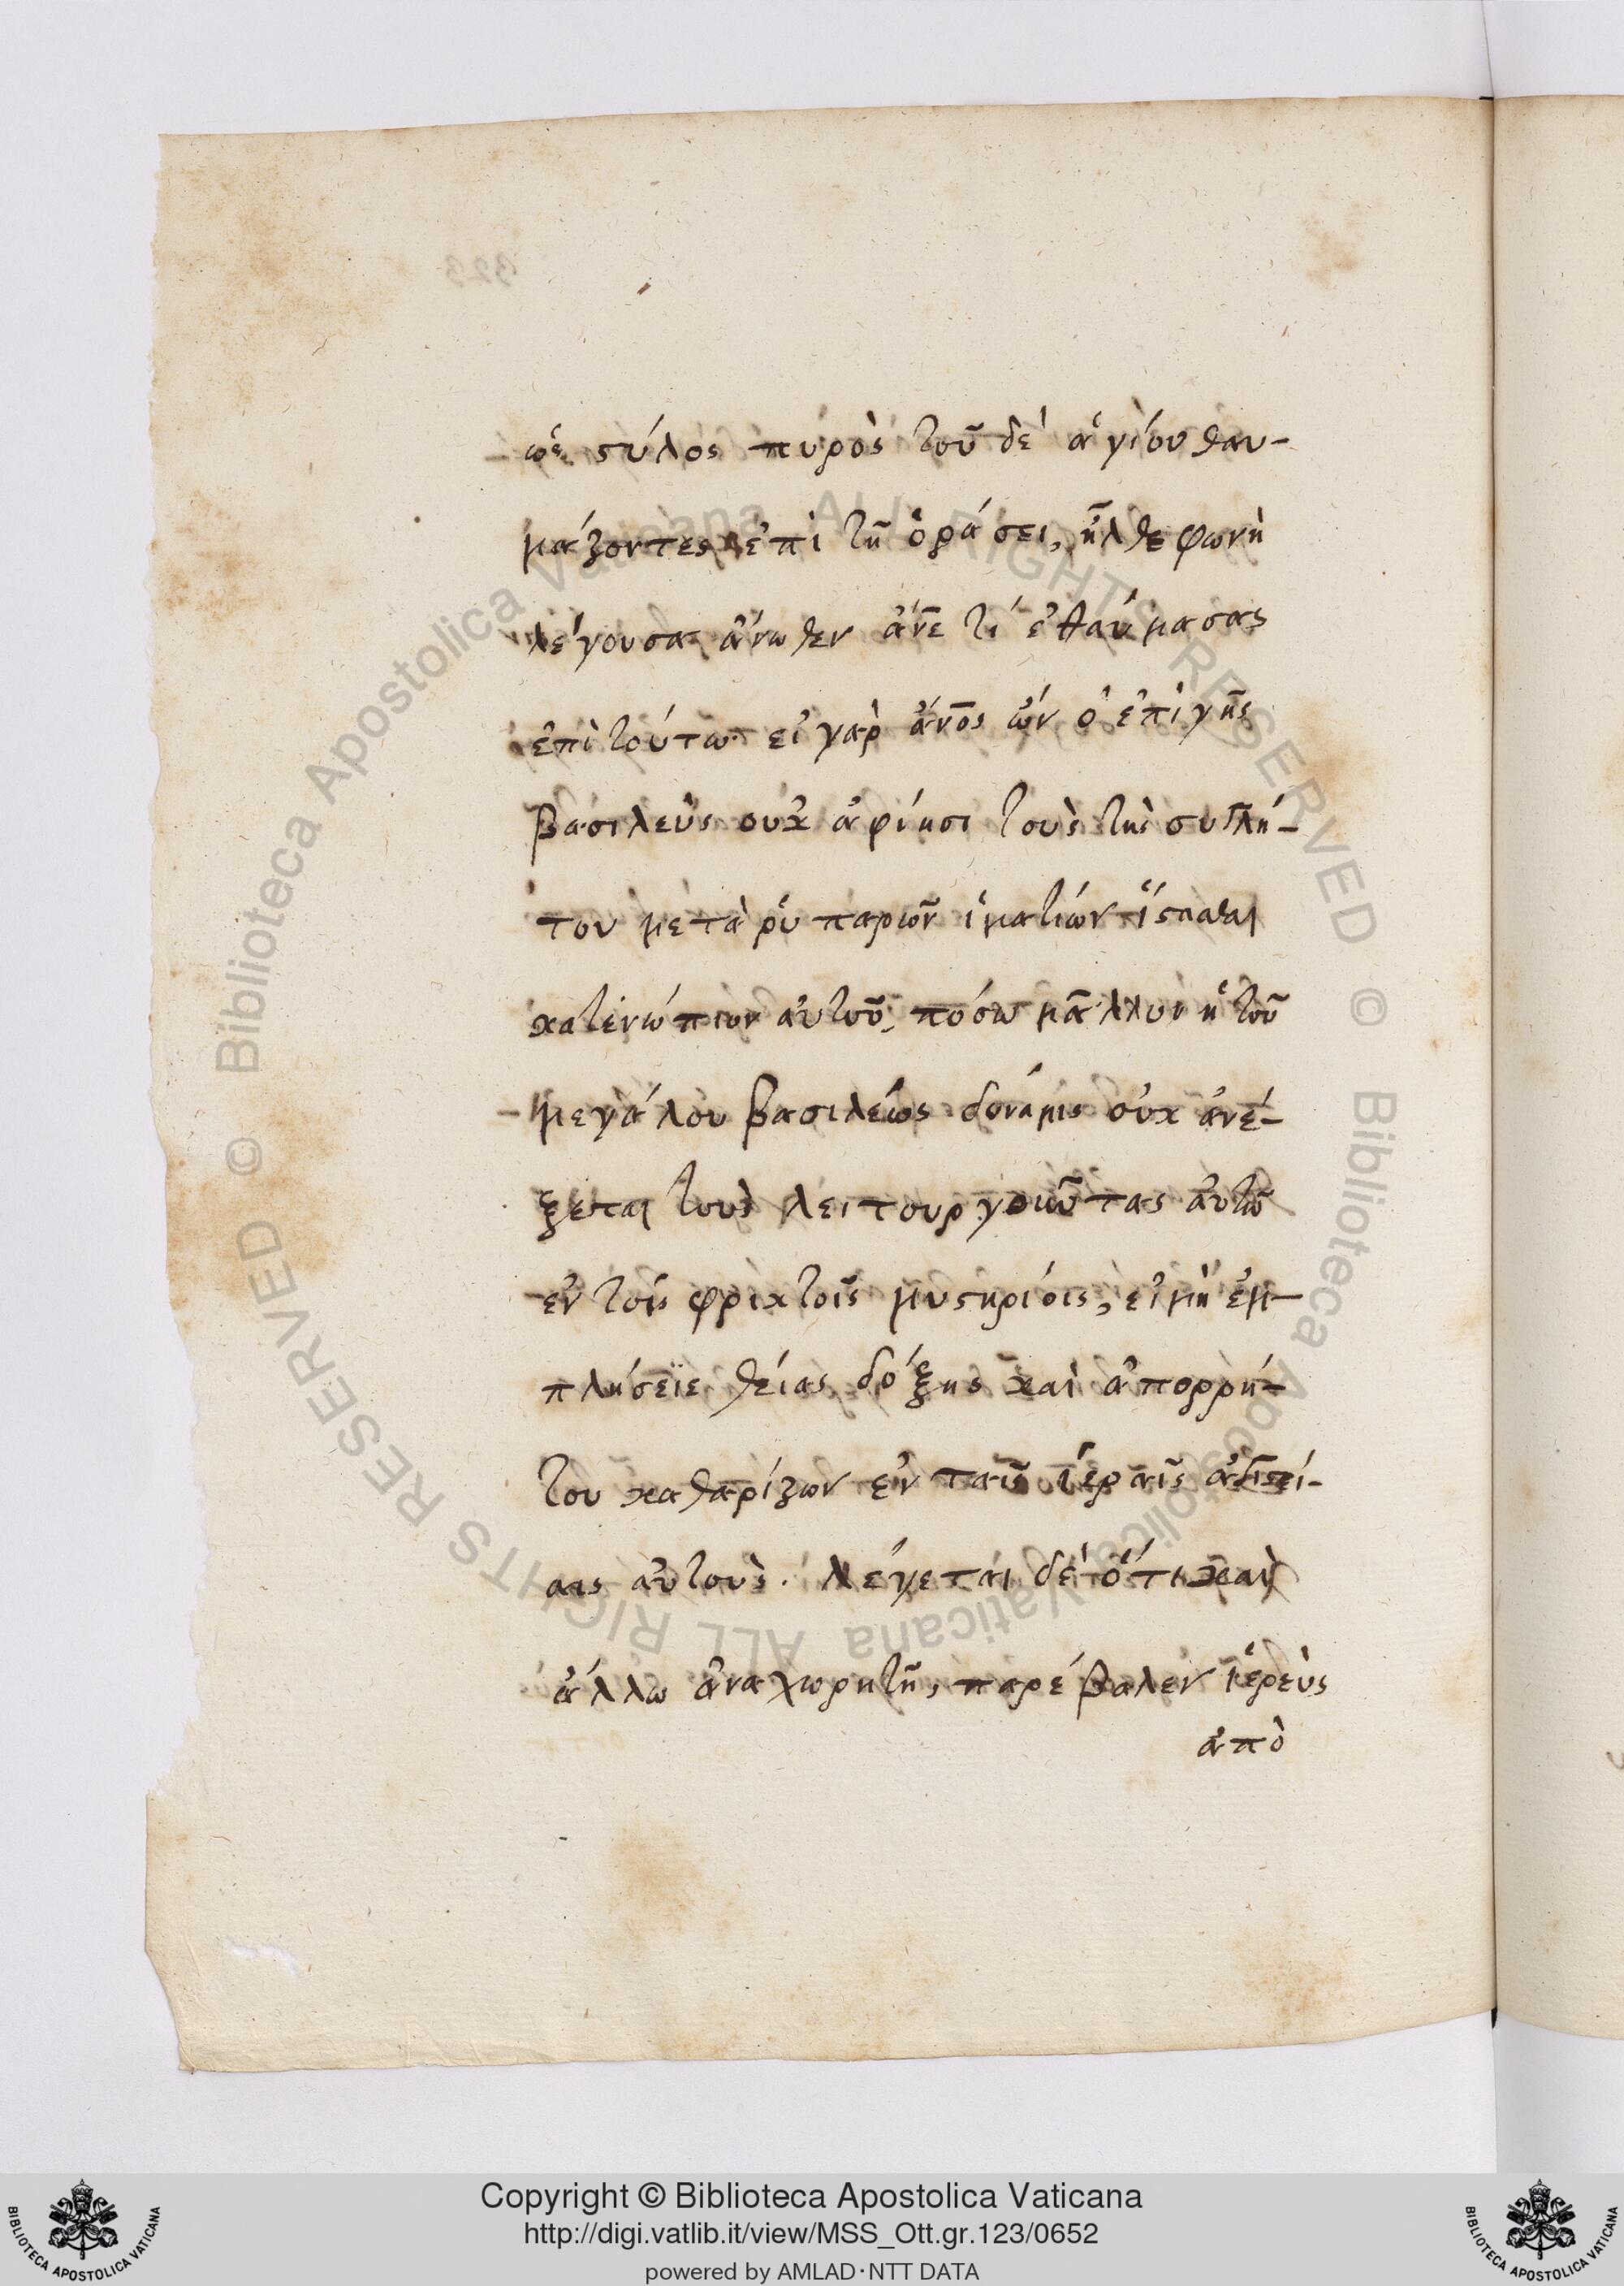 ὡς στύλος πυρὸς τοῦ δὲ ἁγίου θαυ-
μάζοντες ἐπὶ τῇ ὁράσει, ἦλθε φωνὴ
λέγουσα ἄνωθεν ἄν̅ε τί ἐθαύμασας
ἐπὶ τούτω εἰ γὰρ ἄν̅ος ὢν ὁ ἐπὶ γῆς
βασιλεὺς οὐκ ἀφίησι τοὺς τῆς συγκλή-
του μετὰ ῥυπαρῶν ἱματίων ἵστασθαι
κατενώπιον αὐτοῦ, πόσω μᾶλλον ἡ τοῦ
μεγάλου βασιλέως δύναμις οὐκ ἀνέ-
ξεται τοὺς λειτουργοῦντας αὐτῶ
ἐν τοῖς φρικτοῖς μυστηρίοις, εἰ μὴ ἐμ-
πλήσειε θείας δόξης καὶ ἀπορρή-
του καθαρίζων ἐν ταῖς ἱεραῖς
αις αὐτούς. λέγεται δὲ ὅτι καὶ
ἄλλω ἀναχωρητῇ, παρέβαλεν ἱερεὺς
ἀπὸ
323
© Biblioteca Apostolica Vaticana ALL RIGHTS RESERVED © Biblioteca Apostolica Vaticana ALL RIGHTS RESERVED
Copyright © Biblioteca Apostolica Vaticana
http://digi.vatlib.it/view/MSS_Ott.gr.123/0652
powered by AMLAD·NTT DATA
BIBLIOTECA APOSTOLICA VATICANA
BIBLIOTECA APOSTOLICA VATICANA